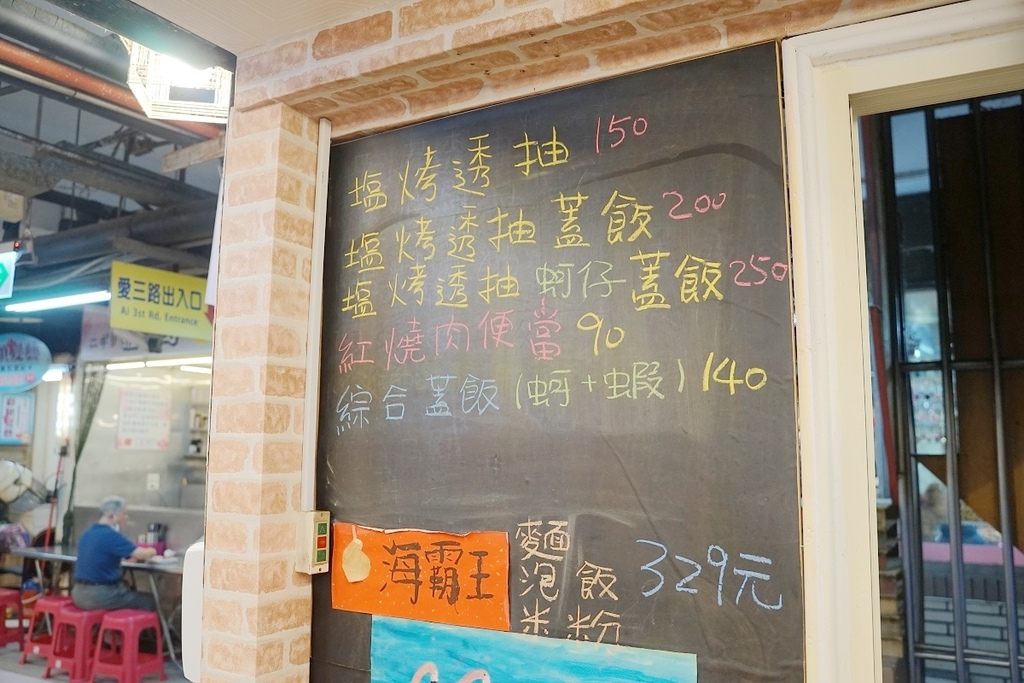 塩烤透抽 150
塩烤透抽蓋飯 200
塩烤透抽蚵仔蓋飯 250
紅燒肉便當 90
綜合蓋飯(蚵+蝦) 140
海霸王
麵
泡飯
米粉
329元
愛三路出入口
Ai 3st Rd. Entrance